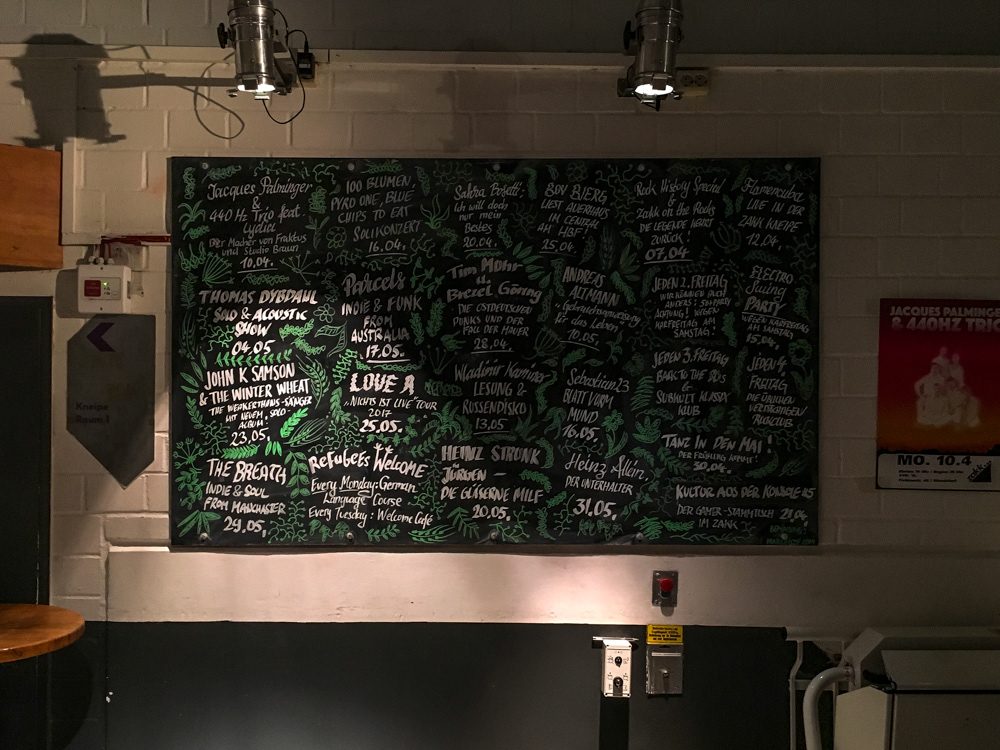 Jacques Palminger
&
440 Hz Trio feat.
Lydia
Der Macher von Fraktus
und Studio Braun
10.04.
100 BLUMEN,
PYRO ONE, BLUE
CHIPS TO EAT
SOLIKONZERT
16.04.
Salsha
Ich will doch
nur mein
Bestes
20.04.
BOV BJERG
LIEST AUERHAUS
IM CENTRAL
AM HBF!
25.04.
Rock History Special
&
Zakk on the Rocks
DIE LEGENDE KEHRT
ZURÜCK!
07.04.
Flamencuba
LIVE IN DER
ZAKK KNEIPE
12.04.
THOMAS DYBDAHL
SOLO & ACOUSTIC
SHOW
04.05.
Parcels
INDIE & FUNK
FROM
AUSTRALIA
17.05.
Tim Mohr
u.
Brezel Göring
DIE OSTDEUTSCHEN
PUNKS UND DER
FALL DER MAUER
28.04.
ANDREAS
ALTMANN
Gebrauchsanweisung
für das Leben
10.05.
JEDEN 2. FREITAG
WIR KÖNNEN AUCH
ANDERS: 
ACHTUNG! WEGEN
KARFREITAG AM
SAMSTAG!
ELECTRO
Swing
PARTY
WEGEN KARFREITAG
AM SAMSTAG,
15.04.
JOHN K SAMSON
& THE WINTER WHEAT
THE WEAKERTHANS-SÄNGER
MIT NEUEM, SOLO-
ALBUM
23.05.
LOVE A
„NICHTS IST LIVE" TOUR
2017
25.05.
Wladimir Kaminer
LESUNG &
RUSSENDISKO
13.05
Sebastian23
BLATT VORM
MUND
16.05.
JEDEN 3. FREITAG
BACK TO THE 80s
&
SUBKULT KLASSIX
KLUB
JEDEN 4.
FREITAG
DIE ÜBLICHEN
VERDÄCHTIGEN
THE BREATH
INDIE & SOUL
FROM MANCHESTER
29.05.
Refugees Welcome
Every Monday: German
Language Course
Every Tuesday: Welcome Café
HEINZ STRUNK
JÜRGEN
DIE GLÄSERNE MILF
20.05.
Heinz Allein,
DER UNTERHALTER
31.05.
TANZ IN DEN MAI!
DER FRÜHLING KOMMT!
30.04.
KULTUR AUS DER KONSOLE #5
DER GAMER-STAMMTISCH
IM ZAKK
Kneipe
Room 1
JACQUES PALMING
& 440HZ TRIO
MO. 10.4